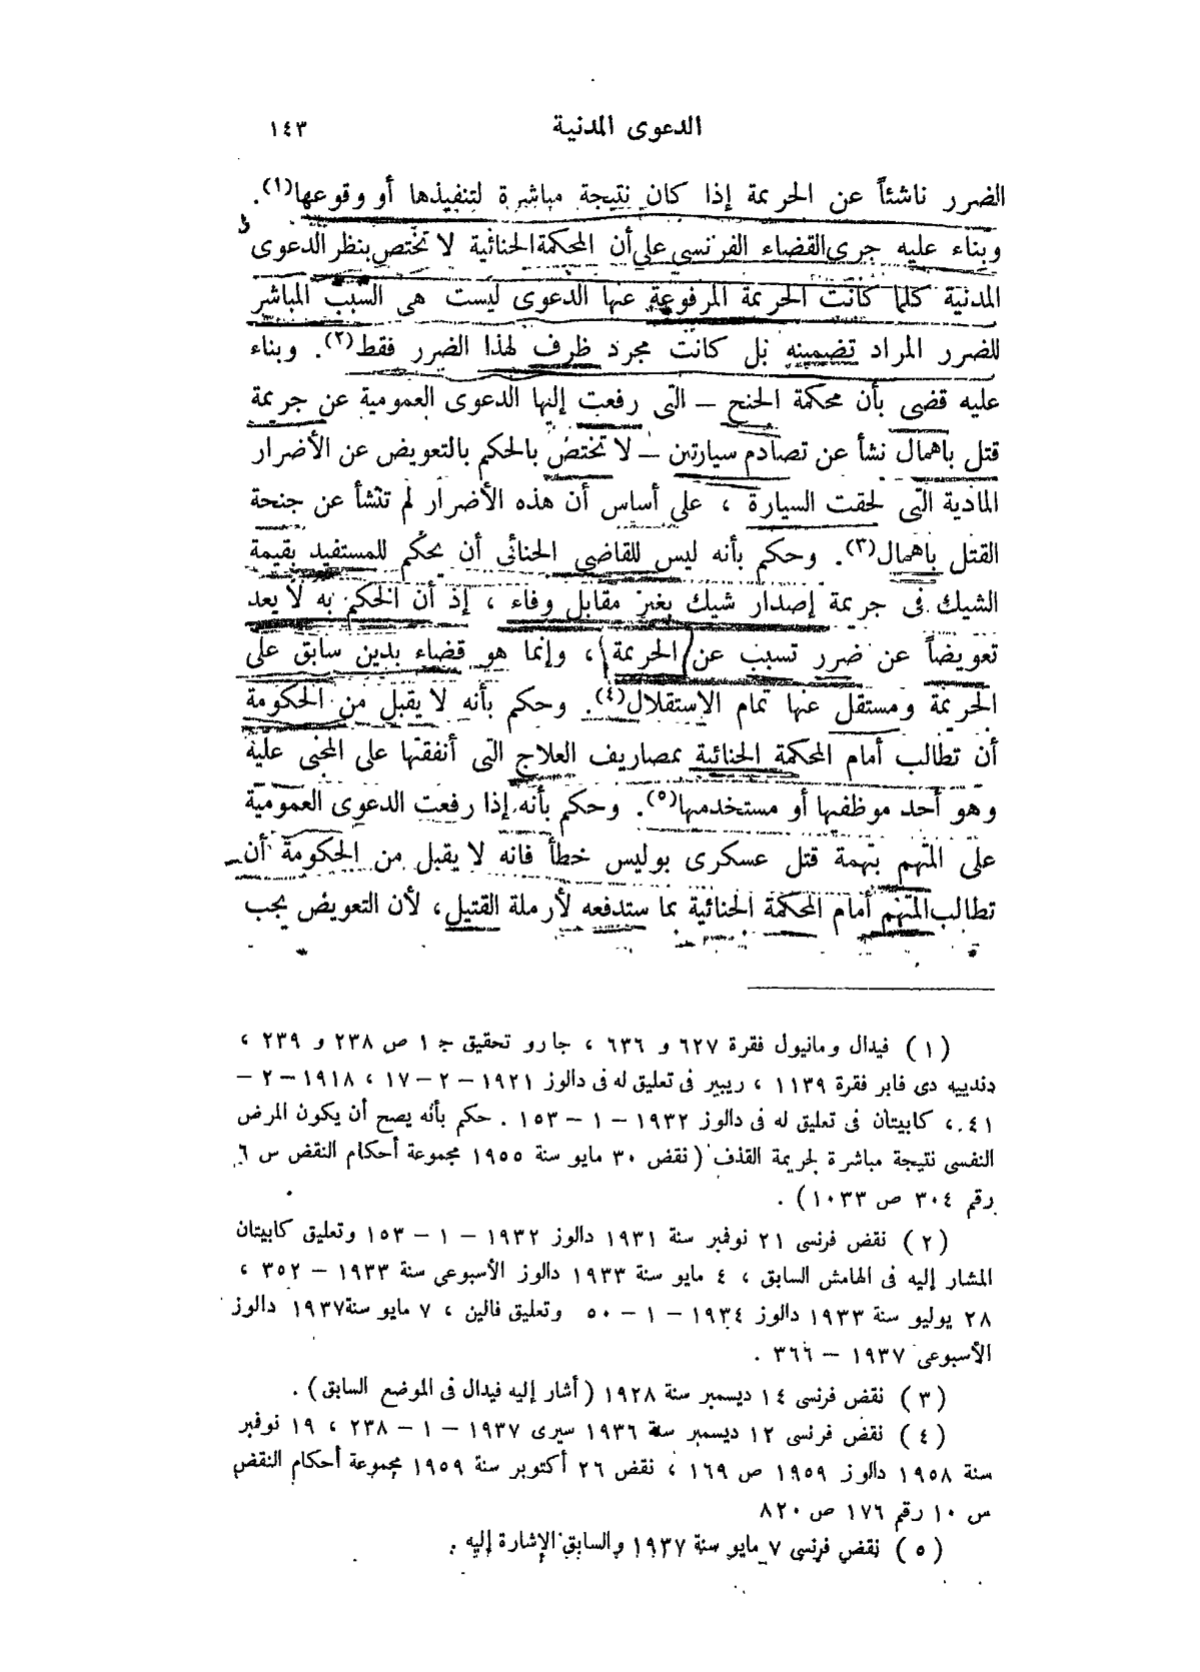 الدعوى المدنية ١٤٣
الضرر ناشئاً عن الجريمة إذا كان نتيجة مباشرة لتنفيذها أو وقوعها(١).
وبناء عليه جرى القضاء الفرنسى على أن المحكمة الجنائية لا تختص بنظر الدعوى
المدنية كلما كانت الجريمة المرفوعة عنها الدعوى ليست هى السبب المباشر
للضرر المراد تضمينه بل كانت مجرد ظرف لهذا الضرر فقط(٢). وبناء
عليه قضى بأن محكمة الجنح – التى رفعت إليها الدعوى العمومية عن جريمة
قتل باهمال نشأ عن تصادم سيارتين – لا تختص بالحكم بالتعويض عن الأضرار
المادية التى لحقت السيارة ، على أساس أن هذه الأضرار لم تنشأ عن جنحة
القتل باهمال(٣). وحكم بأنه ليس للقاضى الجنائى أن يحكم للمستفيد بقيمة
الشيك فى جريمة إصدار شيك بغير مقابل وفاء ، إذ أن الحكم به لا يعد
تعويضاً عن ضرر تسبب عن الجريمة ، وإنما هو قضاء بدين سابق على
الجريمة ومستقل عنها تمام الاستقلال(٤). وحكم بأنه لا يقبل من الحكومة
أن تطالب أمام المحكمة الجنائية بمصاريف العلاج التى أنفقتها على المجنى عليه
وهو أحد موظفيها أو مستخدميها(٥). وحكم بأنه إذا رفعت الدعوى العمومية
على المتهم بتهمة قتل عسكرى بوليس خطأ فانه لا يقبل من الحكومة أن
تطالب المتهم أمام المحكمة الجنائية بما ستدفعه لأرملة القتيل، لأن التعويض يجب
(١) فيدال ومانيول فقرة ٦٢٧ و ٦٣٦ ، جارو تحقيق جـ ١ ص ٢٣٨ و ٢٣٩ ،
دندييه دى فابر فقرة ١١٣٩ ، ريبير فى تعليق له فى دالوز ١٩٢١ – ٢ – ١٧ ، ١٩١٨ – ٢ –
٤١ ، كابيتان فى تعليق له فى دالوز ١٩٣٢ – ١ – ١٥٣ . حكم بأنه يصح أن يكون المرض
النفسى نتيجة مباشرة لجريمة القذف ( نقض ٣٠ مايو سنة ١٩٥٥ مجموعة أحكام النقض س ٦
رقم ٣٠٤ ص ١٠٣٣ ) .
(٢) نقض فرنسى ٢١ نوفمبر سنة ١٩٣١ دالوز ١٩٣٢ – ١ – ١٥٣ وتعليق كابيتان
المشار إليه فى الهامش السابق ، ٤ مايو سنة ١٩٣٣ دالوز الأسبوعى سنة ١٩٣٣ – ٣٥٢ ،
٢٨ يوليو سنة ١٩٣٣ دالوز ١٩٣٤ – ١ – ٥٠ وتعليق فالين ، ٧ مايو سنة ١٩٣٧ دالوز
الأسبوعى ١٩٣٧ – ٣٦٦ .
(٣) نقض فرنسى ١٤ ديسمبر سنة ١٩٢٨ ( أشار إليه فيدال فى الموضع السابق ) .
(٤) نقض فرنسى ١٢ ديسمبر سنة ١٩٣٦ سيرى ١٩٣٧ – ١ – ٢٣٨ ، ١٩ نوفمبر
سنة ١٩٥٨ دالوز ١٩٥٩ ص ١٦٩ ، نقض ٢٦ أكتوبر سنة ١٩٥٩ مجموعة أحكام النقض
س ١٠ رقم ١٧٦ ص ٨٢٠
(٥) نقض فرنسى ٧ مايو سنة ١٩٣٧ والسابق الإشارة إليه .